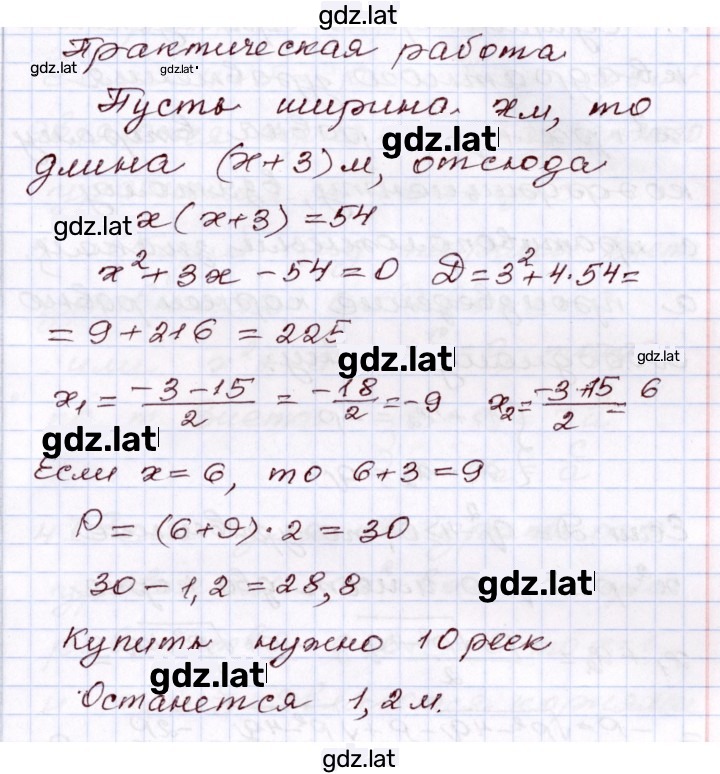 gdz.lat
Практическая работа
gdz.lat gdz.lat
Пусть ширина x м, то
gdz.lat
длина (x+3) м, отсюда
gdz.lat x(x+3) = 54
x² + 3x - 54 = 0 D = 3² + 4·54 =
= 9 + 216 = 225
gdz.lat gdz.lat
x₁ = (-3-15)/2 = -18/2 = -9 x₂ = (-3+15)/2 = 6
gdz.lat
Если x = 6, то 6+3 = 9
P = (6+9)·2 = 30
30 - 1,2 = 28,8 gdz.lat
Купить нужно 10 реек
gdz.lat
Останется 1,2 м.
gdz.lat